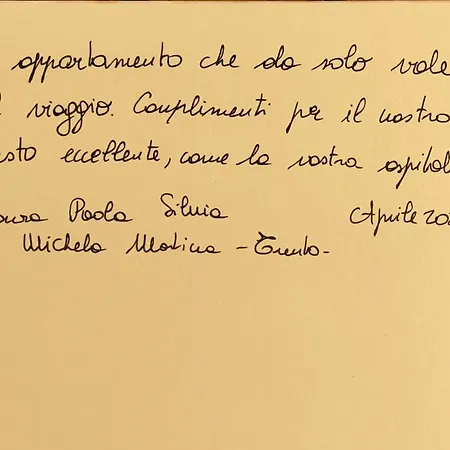 appartamento che da solo vale
viaggio. Complimenti per il vostro
eccellente, come la vostra
Paola Silvia Aprile
Michela Martina - Trento -